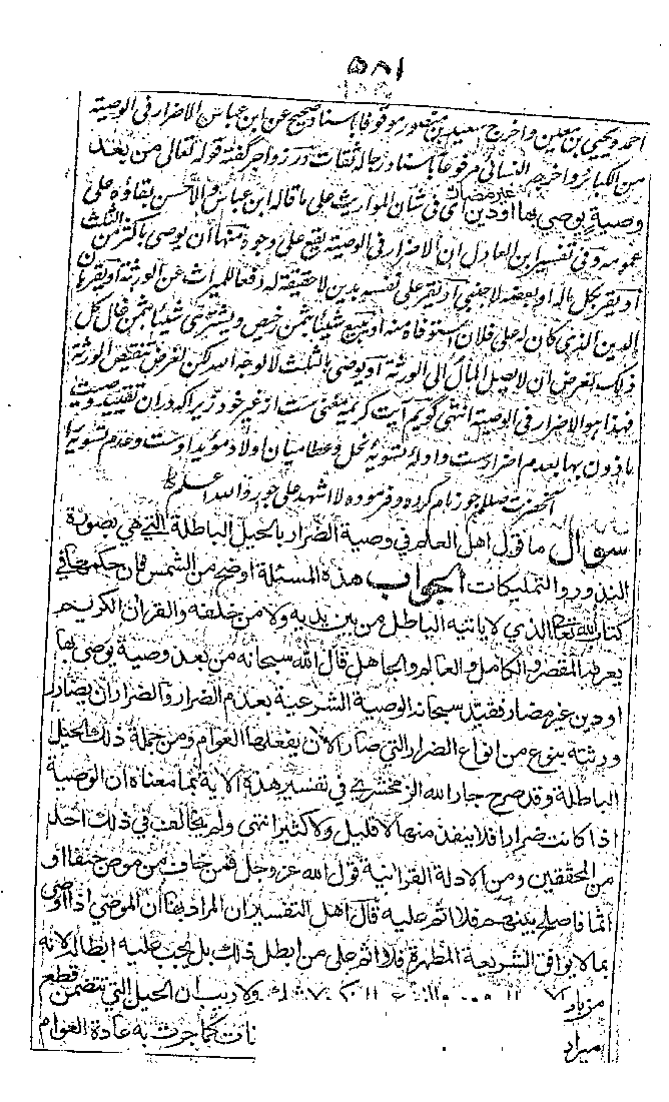 ٥٨١
احمد ويحيى بن معين واخرج سعيد بن منصور موقوفا باسناد صحيح عن ابن عباس الاضرار في الوصية
من الكبائر واخرجه النسائي مرفوعا باسناد رجاله ثقات در زواجر گفته قوله تعالى من بعد
وصية يوصى بها او دين غير مضار اى فى شان المواريث على ما قاله ابن عباس والاحسن بقاؤه على
عمومه وفى تفسير ابن العادل ان الاضرار فى الوصية يقع على وجوه منها ان يوصى باكثر من الثلث
او يقر بكل ماله او ببعضه لاجنبى او يقر على نفسه بدين لا حقيقة له دفعا للميراث عن الورثة او يقر بان
الدين الذى كان له على فلان استوفاه منه او يبيع شيئا بثمن رخيص ويشترى شيئا بثمن غال كل
ذلك لغرض ان لا يصل المال الى الورثة او يوصى بالثلث لا لوجه الله لكن لغرض تنقيص الورثة
فهذا هو الاضرار فى الوصية انتهى گويم آيت كريمه مغنى ست از غير خود زيرا كه دران تقييد وصيت
ماذون بها بعدم اضرار ست وادله تسويهٔ نحل وعطا ميان اولاد مؤيد اوست وعدم تسويه را
آنحضرت صللم جور نام كرده وفرموده لا اشهد على جور والله اعلم
سوال ما قول اهل العلم في وصية الضرار بالحيل الباطلة التي هي بصورة
النذور والتمليكات الجواب هذه المسئلة اوضح من الشمس فان حكمها في
كتاب الله تعالى الذي لا ياتيه الباطل من بين يديه ولا من خلفه والقران الكريم
يعرفه المقصر والكامل والعالم والجاهل قال الله سبحانه من بعد وصية يوصى بها
او دين غير مضار فقيد سبحانه الوصية الشرعية بعدم الضرار والضرار ان يضار
ورثته بنوع من انواع الضرار التي صار الان يفعلها العوام ومن جملة ذلك الحيل
الباطلة وقد صرح جار الله الزمخشري في تفسير هذه الاية بما معناه ان الوصية
اذا كانت ضرارا فلا ينفذ منها لا قليل ولا كثير انتهى ولم يخالف في ذلك احد
من المحققين ومن الادلة القرانية قول الله عز وجل فمن خاف من موص جنفا او
اثما فاصلح بينهم فلا اثم عليه قال اهل التفسير ان المراد بها ان الموصي اذا اوصى
بما لا يوافق الشريعة المطهرة فلا اثم على من ابطل ذلك بل يجب عليه ابطاله لانه
ولا ريب ان الحيل التي تتضمن قطع
ميراد كما جرت به عادة العوام